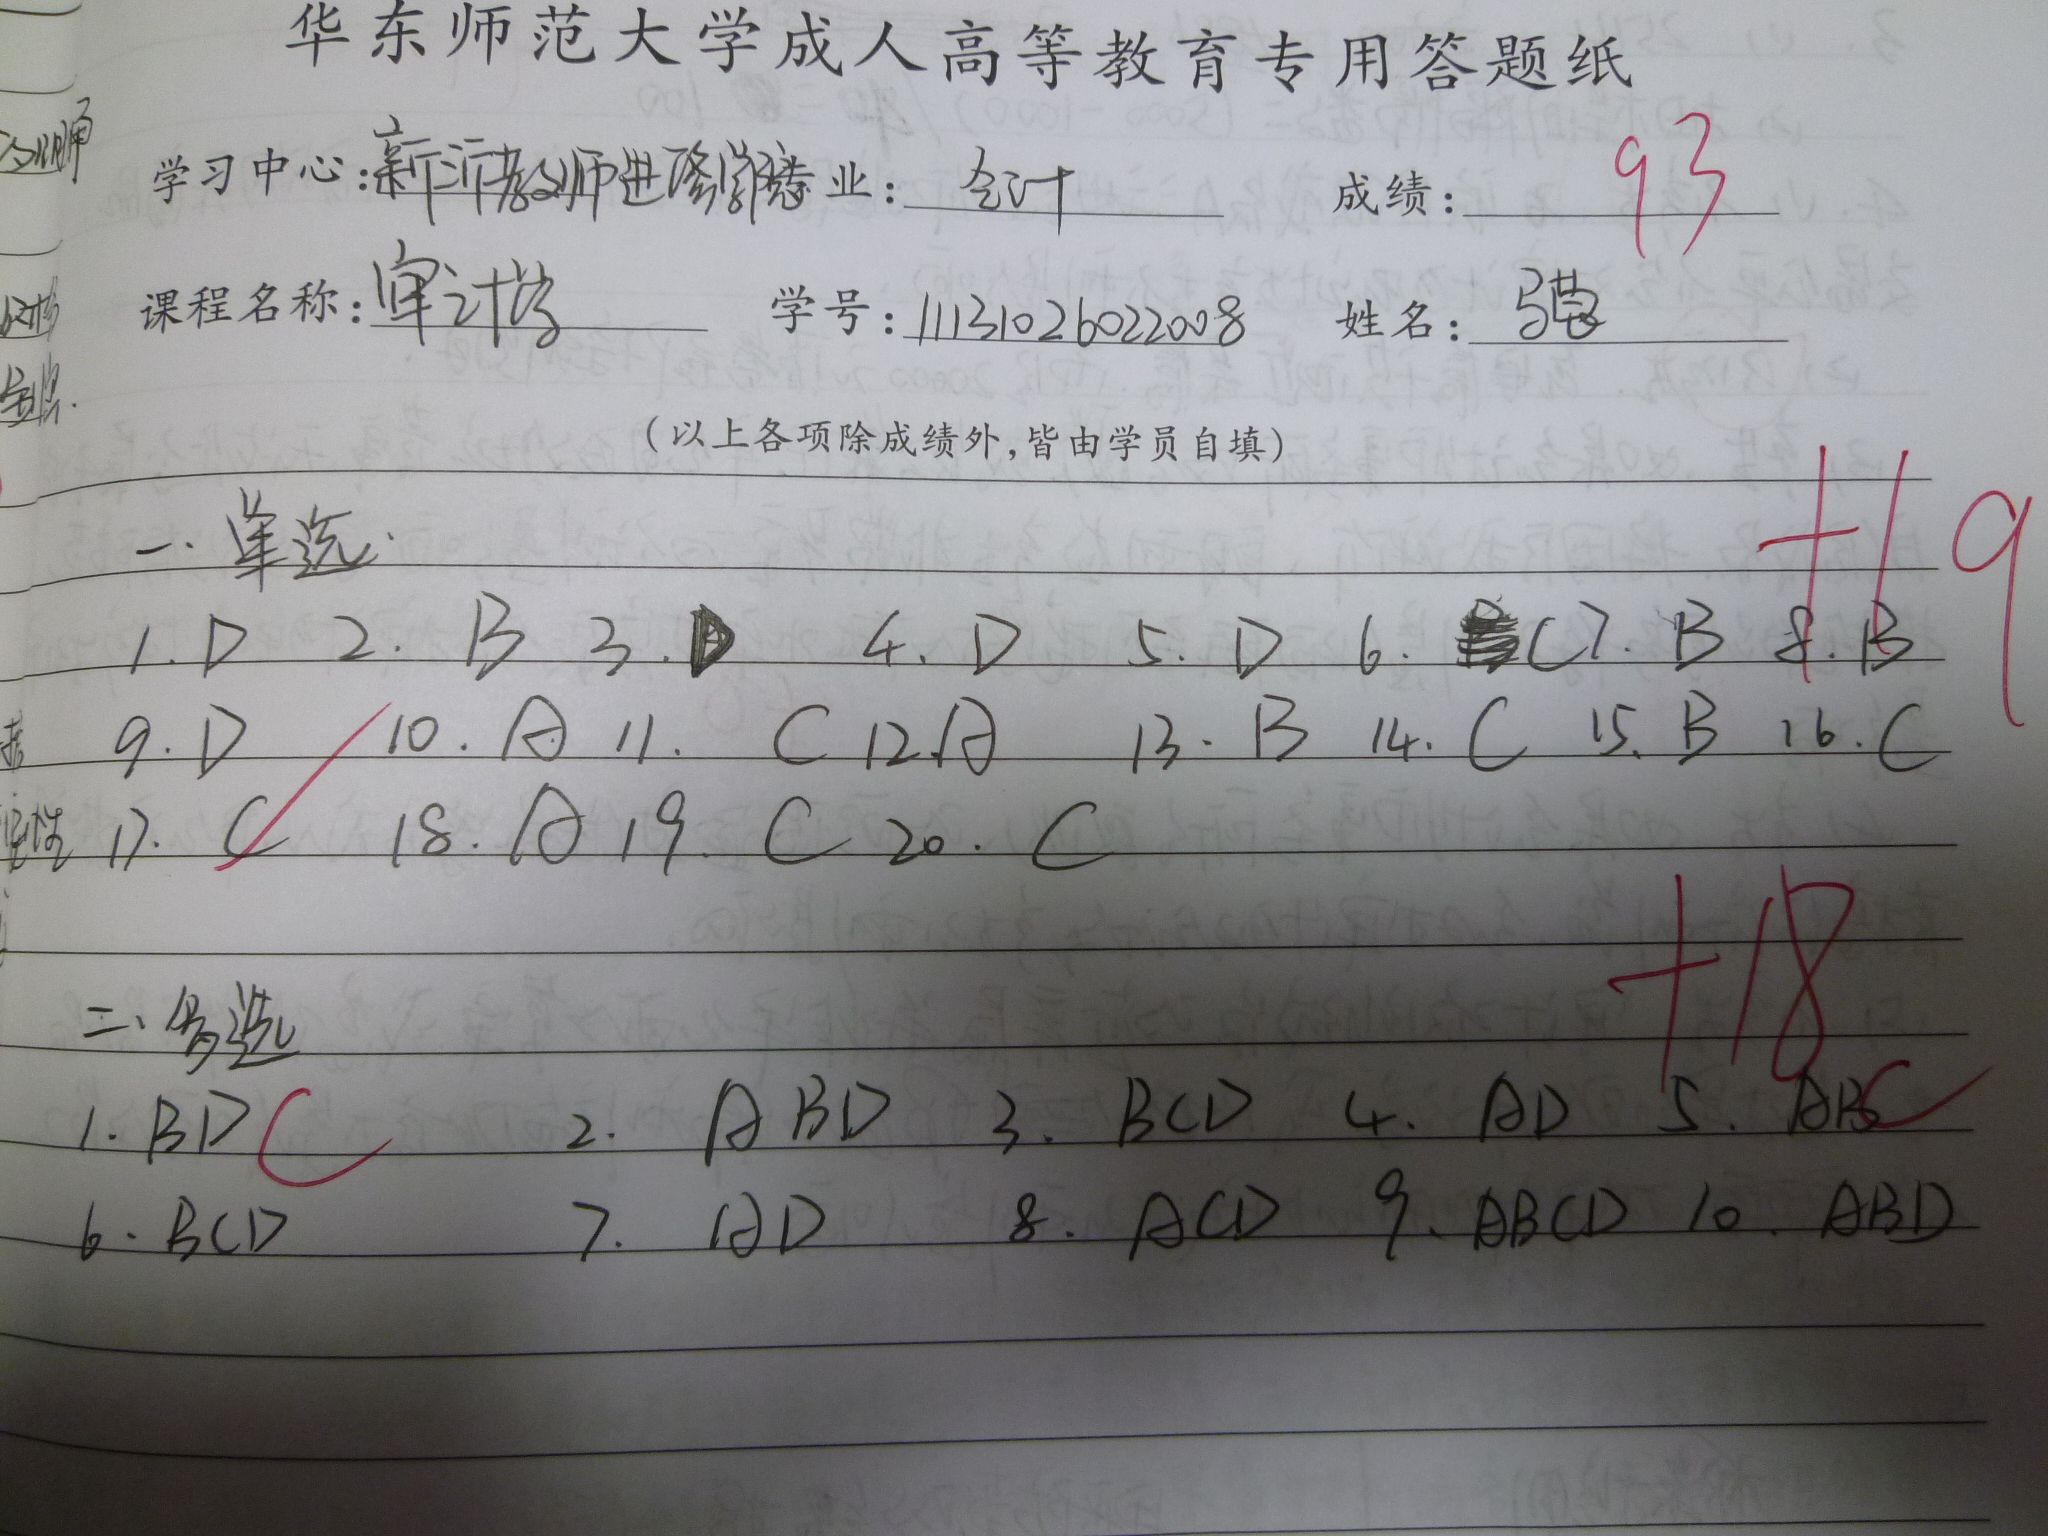 华东师范大学成人高等教育专用答题纸
学习中心:新沂教师进修学校 专业: 会计 成绩: 93
课程名称: 审计学 学号: 11131026022008 姓名:
(以上各项除成绩外,皆由学员自填)
一. 单选. +19
1. D 2. B 3. D 4. D 5. D 6. C 7. B 8. B
9. D 10. A 11. C 12. A 13. B 14. C 15. B 16. C
17. C 18. A 19. C 20. C
+18
二、多选
1. BD C 2. ABD 3. BCD 4. AD 5. AB C
6. BCD 7. AD 8. ACD 9. ABCD 10. ABD